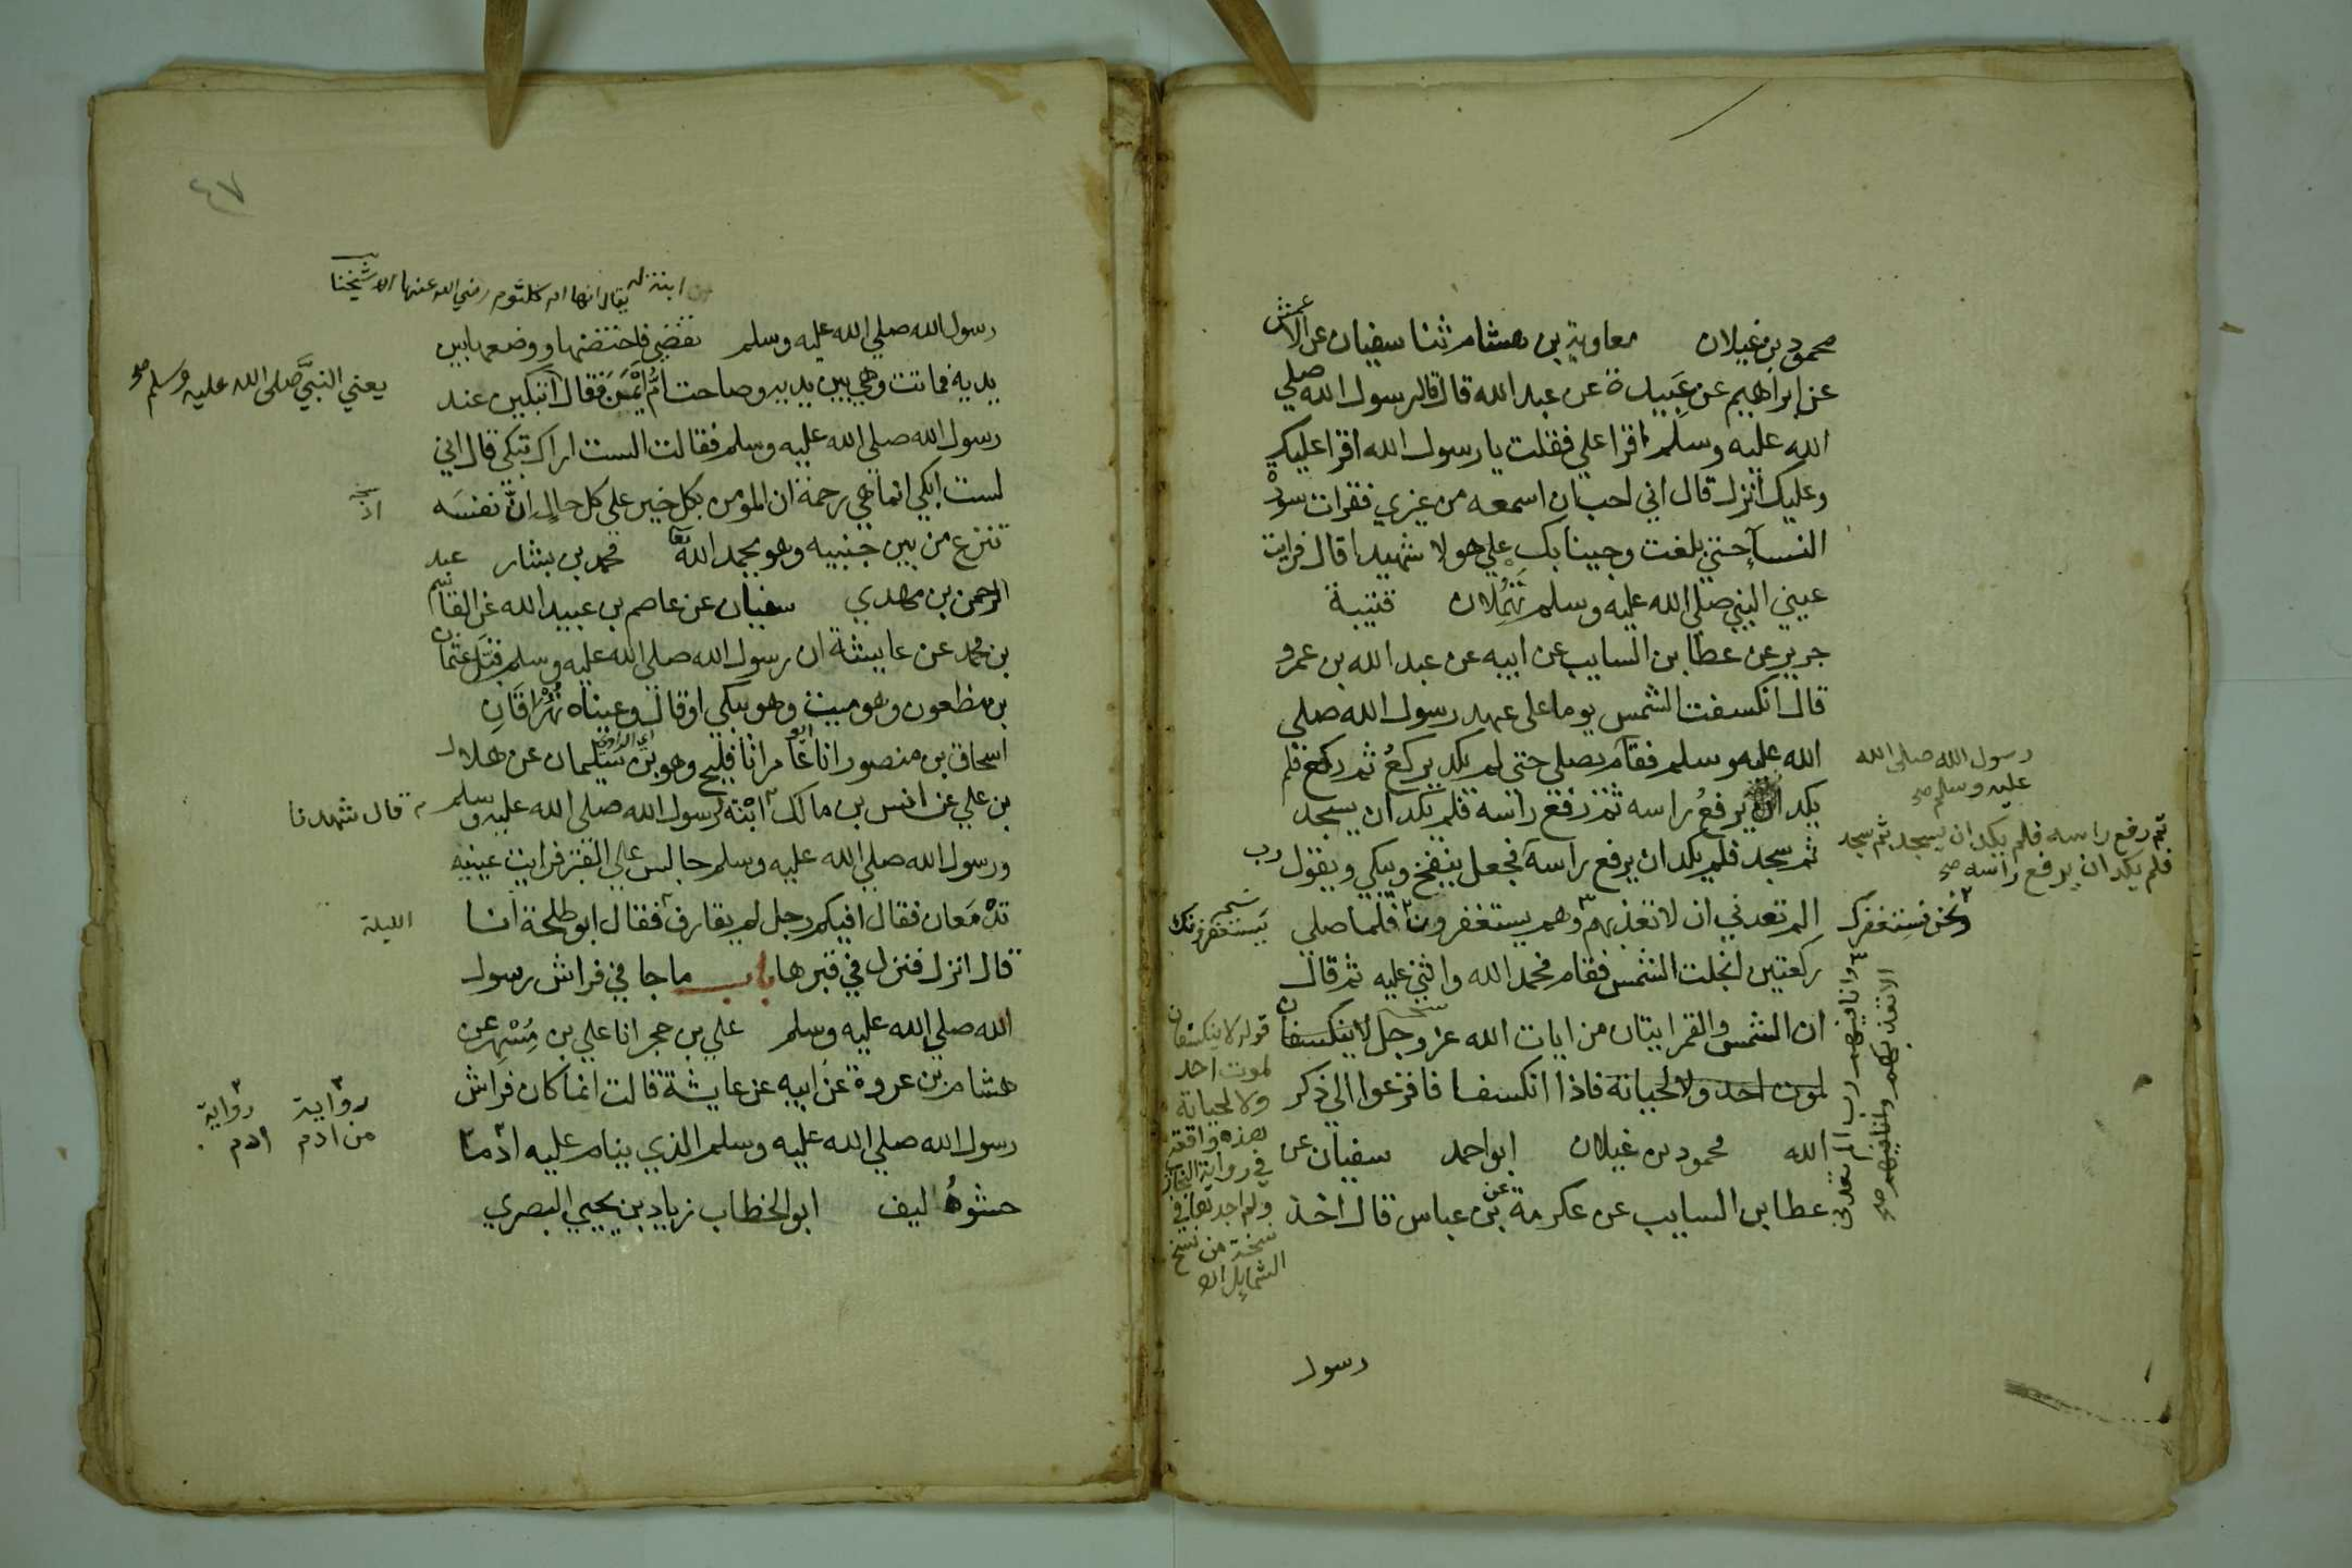 محمود بن غيلان معاوية بن هشام ثنا سفيان عن الاعمش
عن ابراهيم عن عَبِيدة عن عبد الله قال قال رسول الله صلي
الله عليه وسلم اقرا علي فقلت يا رسول الله اقرا عليك
وعليك انزل قال اني احب ان اسمعه من غيري فقرات سورة
النسآ حتي بلغت وجينا بك علي هولا شهيدا قال فرايت
عيني النبي صلي الله عليه وسلم تَهْمُلان قتيبة
جرير عن عطا بن السايب عن ابيه عن عبد الله بن عمرو
قال انكسفت الشمس يوما علي عهد رسول الله صلي
الله عليه وسلم فقام يصلي حتي لم يكد يركعُ ثم ركع فلم
رسول الله صلى الله
عليه وسلم صح
يكد ان يرفعُ راسه ثم رفع راسه فلم يكد ان يسجد
ثم رفع راسه فلم يكد ان يسجد ثم سجد
فلم يكد ان يرفع راسه صح
ثم سجد فلم يكد ان يرفع راسه فجعل ينفخ ويبكي ويقول رب
الم تعدني ان لا تعذبهم وهم يستغفرون فلما صلي
ونحن نستغفرك
يستغفرونك
ركعتين انجلت الشمس فقام فحمد الله واثني عليه ثم قال
ان الشمس والقمر ايتان من ايات الله عز وجل لا ينكسفان
لموت احد ولا لحياته فاذا انكسفا فافزعوا الي ذكر
الله محمود بن غيلان ابو احمد سفيان عن
عطا بن السايب عن عكرمة عن بن عباس قال اخذ
وانا فيهم رب الم تعدني
ان لا تعذبهم وانا فيهم صح
قوله لا ينكسفان
لموت احد
ولا لحياته
هذه واقعة
في رواية
ولم اجدها في
نسخة من نسخ
الشمايل اه
رسول
٤٧
ابنة له يقال انها ام كلثوم رضي الله عنها اه شيخنا
رسول الله صلي الله عليه وسلم تقضي فاحتضنها ووضعها بين
يديه فماتت وهي بين يديه وصاحت امُّ ايْمَنَ فقال اتبكين عند
يعني النبيَّ صلى الله عليه وسلم صح
رسول الله صلي الله عليه وسلم فقالت الست اراك تبكي قال اني
لست ابكي انما هي رحمة ان المومن بكل خير علي كل حال ان نفسَه
تنزع من بين جنبيه وهو يحمد الله تعا محمد بن بشار عبد
الرحمن بن مهدي سفيان عن عاصم بن عبيد الله عن القاسم
بن محمد عن عايشة ان رسول الله صلي الله عليه وسلم قبَّل عثمان
بن مظعون وهو ميت وهو يبكي او قال وعيناه تُهْرَاقَانِ
اسحاق بن منصور انا ابو عامر انا فليح وهو بن سليمان عن هلال
اي الراوي
بن علي عن انس بن مالك ابنة لرسول الله صلي الله عليه وسلم
قال شهدنا
ورسول الله صلي الله عليه وسلم جالس علي القبر فرايت عينيه
تدْمَعان فقال افيكم رجل لم يقارف فقال ابو طلحة انا
الليلة
قال انزل فنزل في قبرها باب ما جا في فراش رسول
الله صلي الله عليه وسلم علي بن حجر انا علي بن مُسْهِر عن
هشام بن عروة عن ابيه عن عايشة قالت انما كان فراش
رسول الله صلي الله عليه وسلم الذي ينام عليه ادما
رواية
من ادم
رواية
ادم
حشوُهُ ليف ابو الخطاب زياد بن يحيي البصري